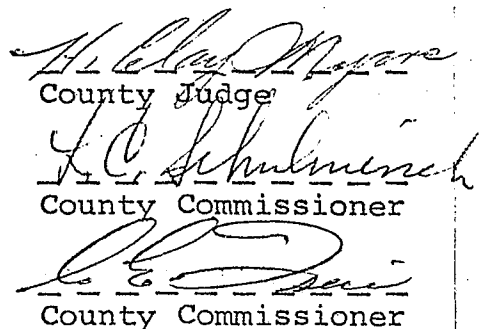 H. Clay Myers
County Judge
L. C. Schulmerich
County Commissioner
C. E.
County Commissioner